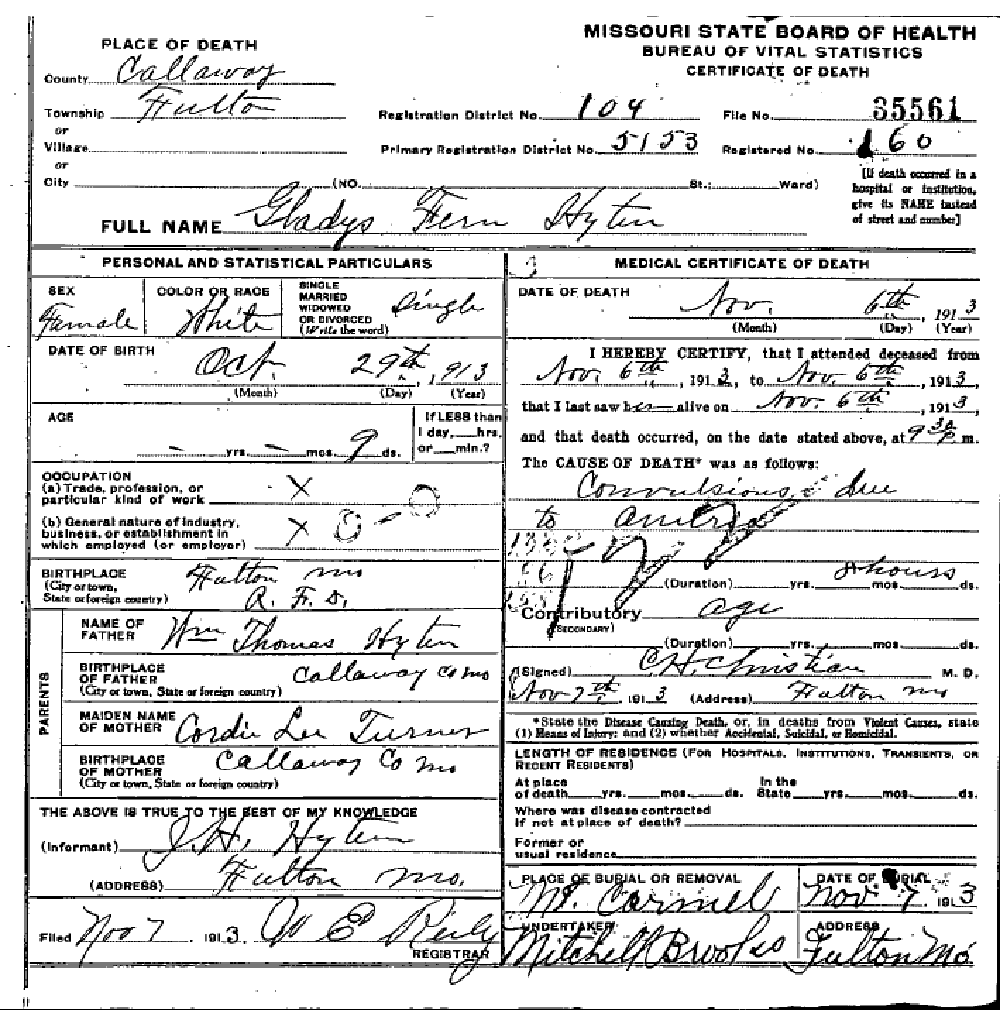 MISSOURI STATE BOARD OF HEALTH
BUREAU OF VITAL STATISTICS
CERTIFICATE OF DEATH
PLACE OF DEATH
County Callaway
Township Fulton
or
Village
or
City (NO. St.; Ward)
Registration District No. 104 File No. 35561
Primary Registration District No. 5153 Registered No. 160
[If death occurred in a
hospital or institution,
give its NAME instead
of street and number]
FULL NAME Gladys Fern Hyten
PERSONAL AND STATISTICAL PARTICULARS
SEX
Female
COLOR OR RACE
White
SINGLE
MARRIED
WIDOWED
OR DIVORCED
(Write the word)
Single
DATE OF BIRTH
Oct. 29th, 1913
(Month) (Day) (Year)
AGE
— yrs. — mos. 9 ds.
If LESS than
1 day, hrs.
or min.?
OCCUPATION
(a) Trade, profession, or
particular kind of work X
(b) General nature of industry,
business, or establishment in
which employed (or employer) X
BIRTHPLACE
(City or town,
State or foreign country)
Fulton Mo
R. F. D.
PARENTS
NAME OF
FATHER Wm Thomas Hyten
BIRTHPLACE
OF FATHER
(City or town, State or foreign country) Callaway Co Mo
MAIDEN NAME
OF MOTHER Cordie Lee Turner
BIRTHPLACE
OF MOTHER
(City or town, State or foreign country) Callaway Co Mo
THE ABOVE IS TRUE TO THE BEST OF MY KNOWLEDGE
(Informant) J. H. Hyten
(ADDRESS) Fulton Mo.
Filed Nov 7 1913. W E Rily
REGISTRAR
MEDICAL CERTIFICATE OF DEATH
DATE OF DEATH
Nov. 6th, 1913
(Month) (Day) (Year)
I HEREBY CERTIFY, that I attended deceased from
Nov. 6th, 1913, to Nov. 6th, 1913,
that I last saw her alive on Nov. 6th, 1913
and that death occurred, on the date stated above, at 9 30 P. m.
The CAUSE OF DEATH* was as follows:
Convulsions due
to
(Duration) yrs. mos. ds. hours
Contributory age
(SECONDARY)
(Duration) yrs. mos. ds.
(Signed) C.H. Christian M. D.
Nov 7th 1913 (Address) Fulton Mo
*State the Disease Causing Death, or, in deaths from Violent Causes, state
(1) Means of Injury; and (2) whether Accidental, Suicidal, or Homicidal.
LENGTH OF RESIDENCE (FOR HOSPITALS, INSTITUTIONS, TRANSIENTS, OR
RECENT RESIDENTS)
At place In the
of death yrs. mos. ds. State yrs. mos. ds.
Where was disease contracted
if not at place of death?
Former or
usual residence
PLACE OF BURIAL OR REMOVAL
Mt. Carmel
DATE OF BURIAL
Nov 7 1913
UNDERTAKER
Mitchell Brooks
ADDRESS
Fulton Mo